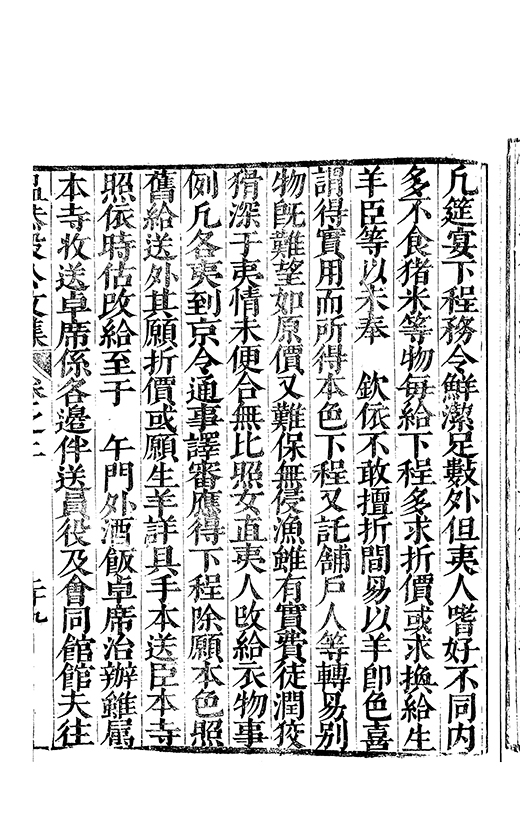 凡筵宴下程務令鮮潔足數外但夷人嗜好不同内
多不食猪米等物毎給下程多求折價或求換給生
羊臣等以未奉　欽依不敢擅折間易以羊卽色喜
謂得實用而所得本色下程又託舖戸人等轉易别
物旣難望如原價又難保無侵漁雖有實費徒潤狡
猾深于夷情未便合無比照女直夷人改給衣物事
例凡各夷到京令通事譯審應得下程除願本色照
舊給送外其願折價或願生羊詳具手本送臣本寺
照依時估改給至于　午門外酒飯卓席治辦雖屬
本寺收送卓席係各邊伴送員役及會同館館夫往
文集　卷之二